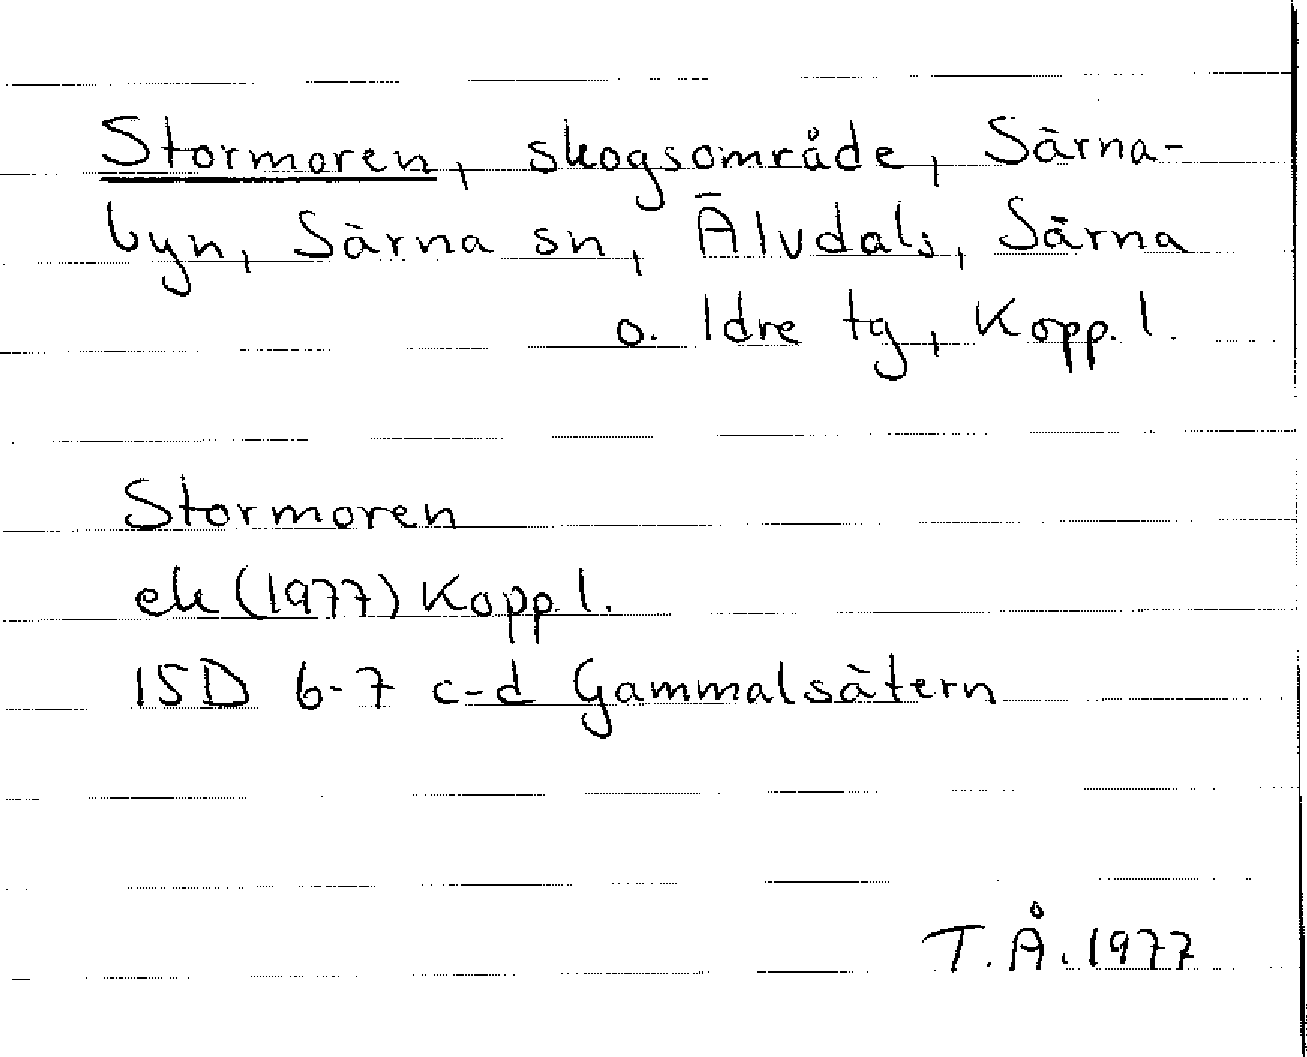 Stormoren, skogsområde, Särna-
byn, Särna sn, Älvdals, Särna
o. Idre tg, Kopp. l.
Stormoren
ek (1977) Kopp l.
15D 6-7 c-d Gammalsätern
T. Å. 1977